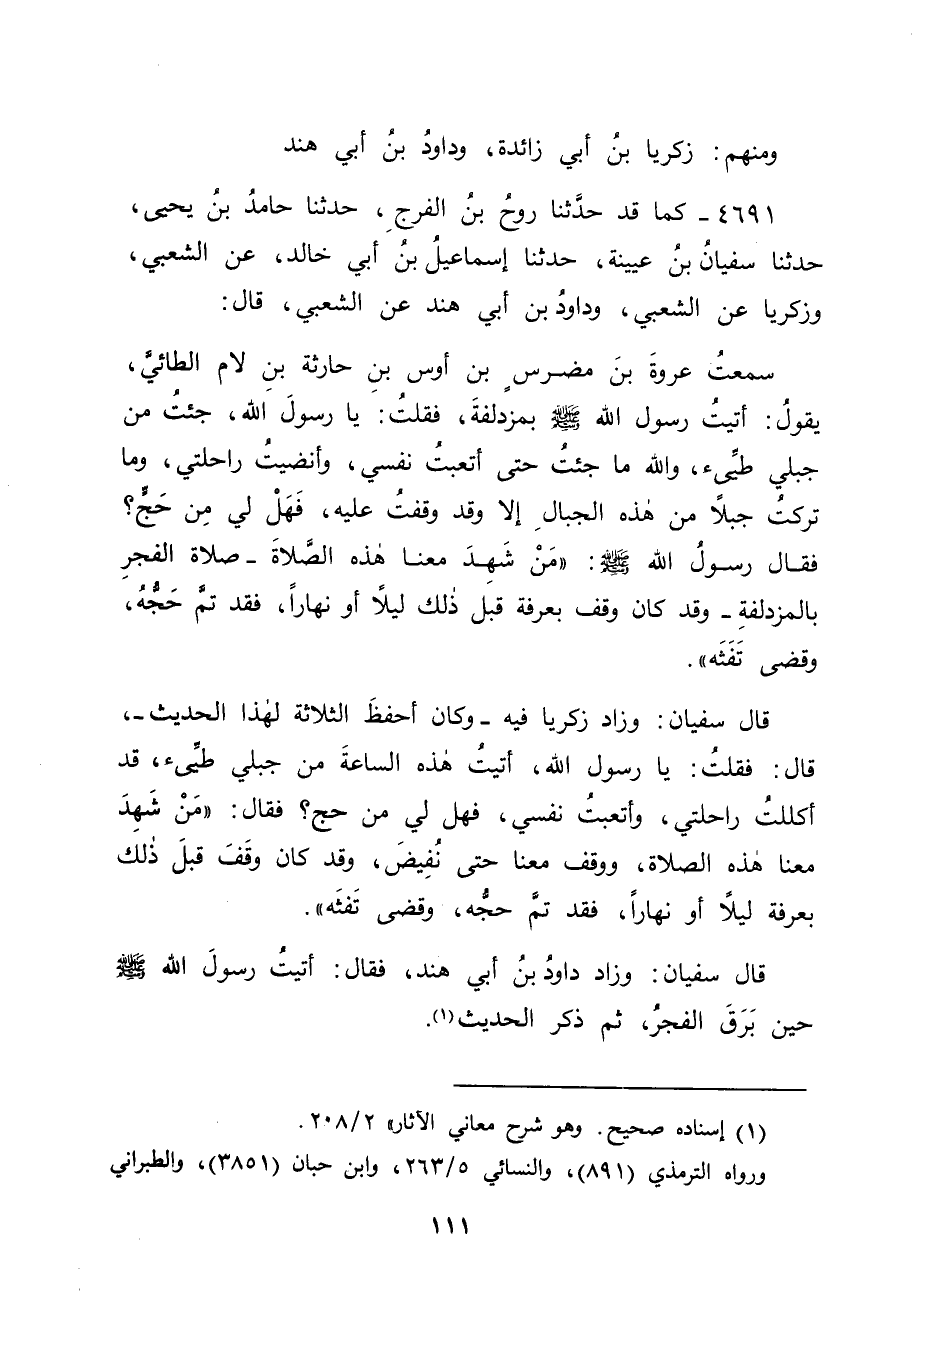 ومنهم: زكريا بنُ أبي زائدة، وداودُ بنُ أبي هند
٤٦٩١ ـ كما قد حدَّثنا روحُ بنُ الفرجِ، حدثنا حامدُ بنُ يحيى،
حدثنا سفيانُ بنُ عيينة، حدثنا إسماعيلُ بنُ أبي خالد، عن الشعبي،
وزكريا عن الشعبي، وداودُ بن أبي هند عن الشعبي، قال:
سمعتُ عروةَ بنَ مضرسٍ بن أوس بنِ حارثة بنِ لام الطائيَّ،
يقولُ: أتيتُ رسول الله ﷺ بمزدلفةَ، فقلتُ: يا رسولَ الله، جئتُ من
جبلي طيِّىء، والله ما جئتُ حتى أتعبتُ نفسي، وأنضيتُ راحلتي، وما
تركتُ جبلًا من هٰذه الجبالِ إلا وقد وقفتُ عليه، فَهَلْ لي مِن حَجٍّ؟
فقال رسولُ الله ﷺ: «مَنْ شَهِدَ معنا هٰذه الصَّلاةَ ـ صلاة الفجرِ
بالمزدلفةِ ـ وقد كان وقف بعرفة قبل ذٰلك ليلًا أو نهاراً، فقد تمَّ حَجُّهُ،
وقضى تَفَثَه».
قال سفيان: وزاد زكريا فيه ـ وكان أحفظَ الثلاثة لهٰذا الحديث ـ،
قال: فقلتُ: يا رسول الله، أتيتُ هٰذه الساعةَ من جبلي طيِّىء، قد
أكللتُ راحلتي، وأتعبتُ نفسي، فهل لي من حج؟ فقال: «مَنْ شَهِدَ
معنا هٰذه الصلاة، ووقف معنا حتى نُفِيضَ، وقد كان وقَفَ قبلَ ذٰلك
بعرفة ليلًا أو نهاراً، فقد تمَّ حجُّه، وقضى تَفثَه».
قال سفيان: وزاد داودُ بنُ أبي هند، فقال: أتيتُ رسولَ الله ﷺ
حين بَرَقَ الفجرُ، ثم ذكر الحديث(١).
(١) إسناده صحيح. وهو شرح معاني الآثار» ٢٠٨/٢.
ورواه الترمذي (٨٩١)، والنسائي ٢٦٣/٥، وابن حبان (٣٨٥١)، والطبراني
١١١